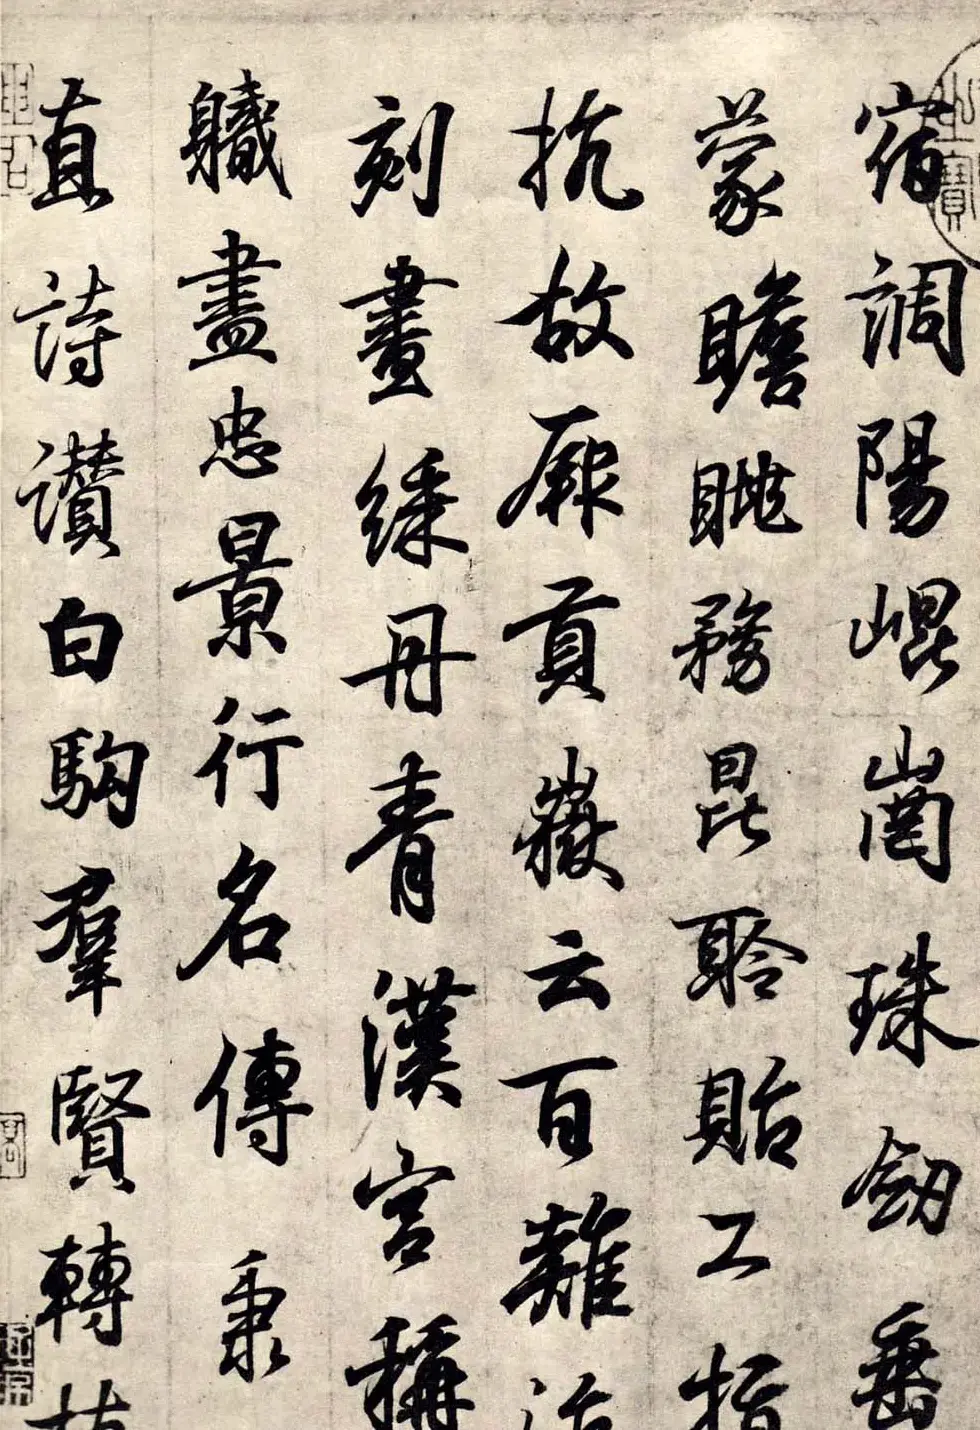 宿調陽崐崗珠劒垂
蒙瞻眺務昆聆貽工指
抗故厥貢嶽云百難
刻畫綵丹青漢宮稱
軄盡忠景行名傳秉
直詩讃白駒羣賢轉